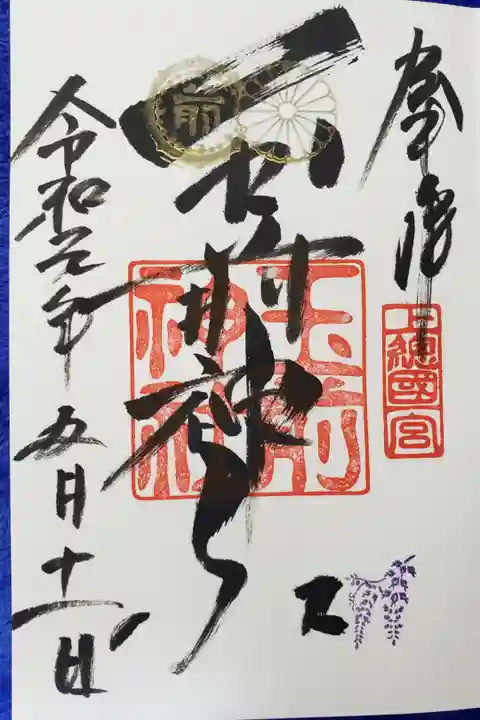 奉拝
上總國一宮
玉前神社
玉前神社
前
令和元年五月十一日